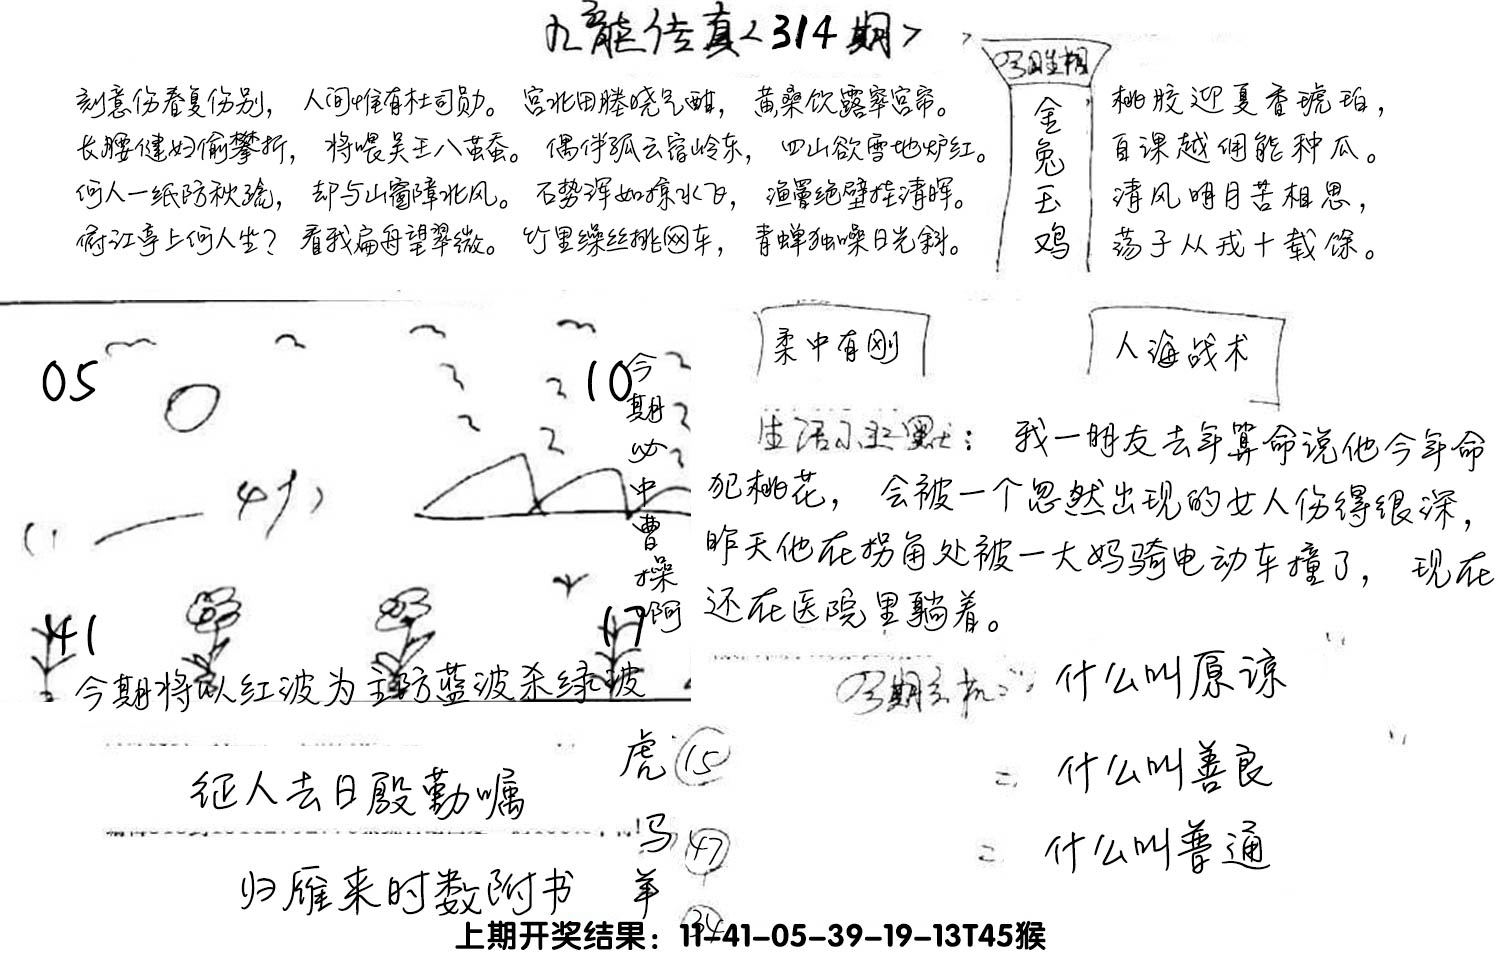 九龙传真<314期>
刻意伤春复伤别， 人间惟有杜司勋。 宫北田塍晓气酣， 黄桑饮露窣宫帘。
长腰健妇偷攀折， 将喂吴王八茧蚕。 偶伴孤云宿岭东， 四山欲雪地炉红。
何人一纸防秋疏， 却与山窗障北风。 石势浑如掠水飞， 渔罾绝壁挂清晖。
俯江亭上何人坐？ 看我扁舟望翠微。 竹里缲丝挑网车， 青蝉独噪日光斜。
金兔玉鸡
桃胶迎夏香琥珀，
自课越佣能种瓜。
清风明月苦相思，
荡子从戎十载馀。
05
10
今期必中曹操啊
41
17
今期将以红波为主防蓝波杀绿波
柔中有刚
人海战术
生活幽默： 我一朋友去年算命说他今年命
犯桃花， 会被一个忽然出现的女人伤得很深，
昨天他在拐角处被一大妈骑电动车撞了， 现在
还在医院里躺着。
什么叫原谅
什么叫善良
什么叫普通
征人去日殷勤嘱
归雁来时数附书
虎 15
马 47
羊 34
上期开奖结果：11-41-05-39-19-13T45猴